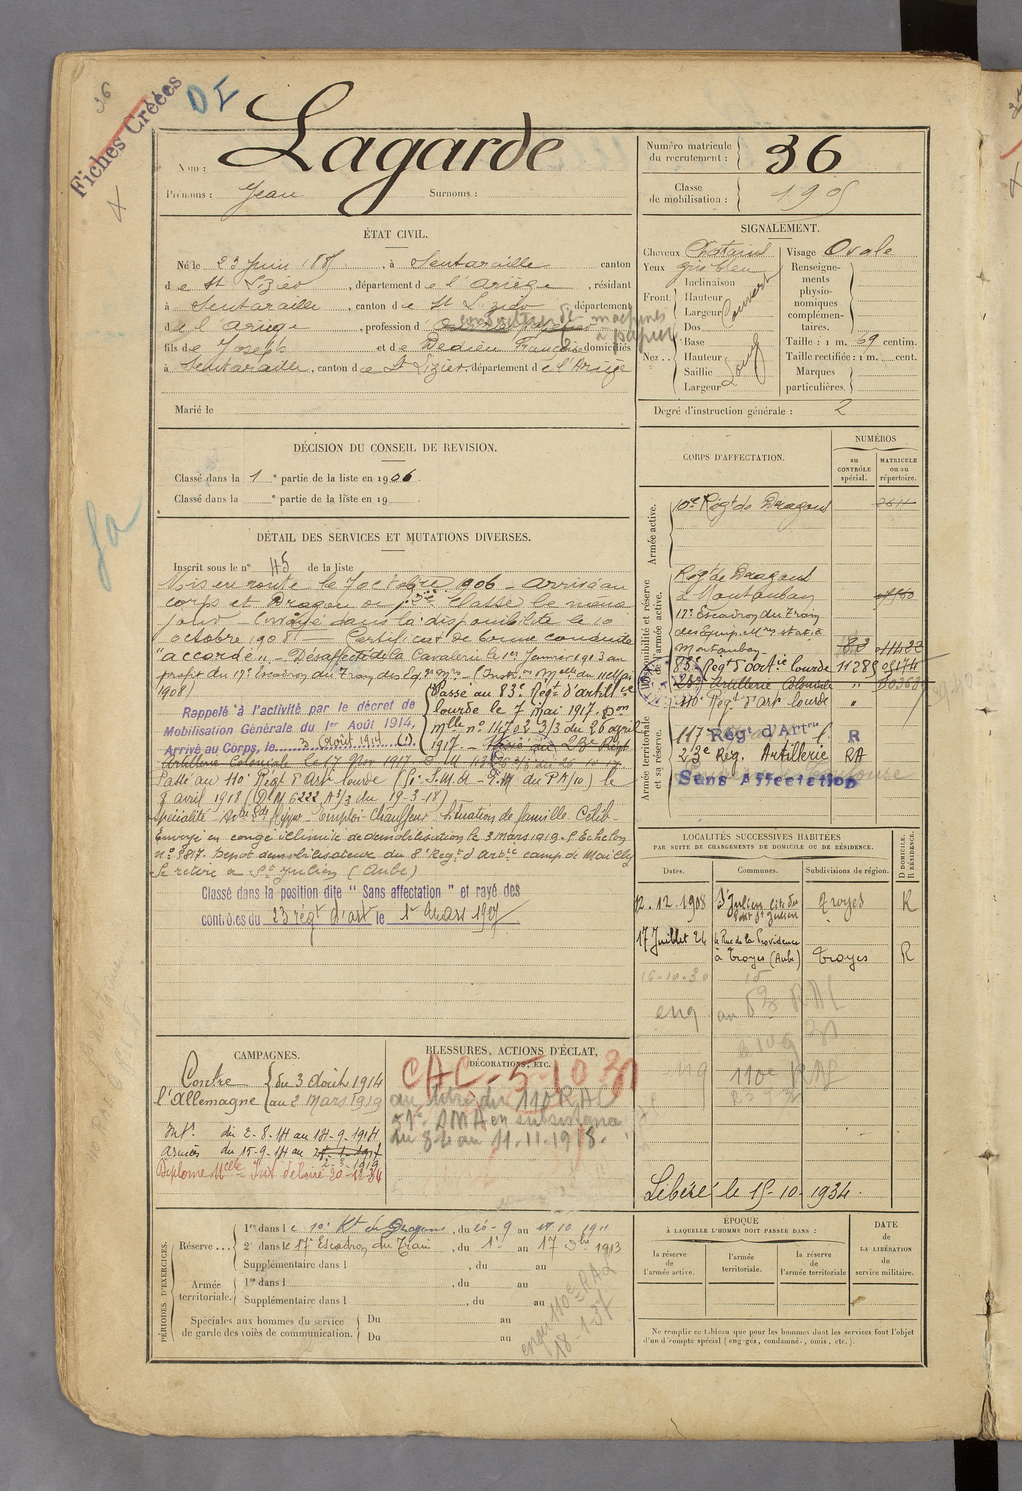 36
Fiches Créées
DI
Nom : Lagarde
Prénoms : Jean Surnoms :
Numéro matricule du recrutement : 36
Classe de mobilisation : 1905
ÉTAT CIVIL.
Né le 23 Juin 1885, à Sentaraille canton
de St Lizier, département de l'Ariège, résidant
à Sentaraille, canton de St Lizier, département
de l'Ariège, profession d conducteur de machines à papier
fils de Joseph et de Dedieu Françoise domiciliés
à Sentaraille, canton de St Lizier, département de l'Ariège
Marié le
SIGNALEMENT.
Cheveux Chatains Visage Ovale
Yeux gris bleu
Front Inclinaison Hauteur Largeur Couvert
Nez Dos Base Hauteur Saillie Largeur Long
Renseignements physionomiques complémentaires.
Taille : 1 m. 69 centim.
Taille rectifiée : 1 m. cent.
Marques particulières.
Degré d'instruction générale : 2
DÉCISION DU CONSEIL DE REVISION.
Classé dans la 1e partie de la liste en 1906
Classé dans la e partie de la liste en 19
DÉTAIL DES SERVICES ET MUTATIONS DIVERSES.
Inscrit sous le n° 45 de la liste
Mis en route le 7 octobre 1906 - Arrivé au
corps et Dragon de 2e classe le même
jour - Envoyé dans la disponibilité le 10
octobre 1908 - Certificat de bonne conduite
"accordé" - Désaffecté de la Cavalerie le 1er Janvier 1913 au
profit du 17e Escadron du Train des Eq. Mres (Instr. Melle du 11 Mars
1908)
Rappelé à l'activité par le décret de
Mobilisation Générale du 1er Août 1914.
Arrivé au Corps, le 3 Août 1914 (1)
Passé au 83e Régt d'artillie
lourde le 7 mai 1917. Don
mlle n° 14702 3/3 du 26 avril
1917. - Passé au 23e Régt
Artillerie Coloniale le 17 Nov 1917
Passé au 110e Régt d'Art lourde le
8 avril 1918 (D.M 6222 A3/3 du 19-3-18)
Emploi Chauffeur Situation de famille Célib.
Envoyé en congé illimité de démobilisation le 3 mars 1919 - 5e Echelon
n° 9817. Dépôt démobilisateur du 8e Régt d'Artie camp de Mailly
Se retire à St Julien (Aube)
Classé dans la position dite "Sans affectation" et rayé des
contrôles du 23 régt d'art le 1er Mars 1927
CORPS D'AFFECTATION.
NUMÉROS
au CONTRÔLE spécial.
MATRICULE ou au répertoire.
Armée active.
10e Régt de Dragons 2611
Disponibilité et réserve de l'armée active.
Régt de Dragons
à Montauban
17e Escadron du Train
des Equip. Mres stat. à
Montauban 82 01488
83e Régt d'artie lourde 11289
23e Artillerie Coloniale "
110e Régt d'art lourde "
Armée territoriale et sa réserve.
117 Régt d'Artrie l. R
23e Rég. Artillerie RA
Sans Affectation
LOCALITÉS SUCCESSIVES HABITÉES
PAR SUITE DE CHANGEMENTS DE DOMICILE OU DE RÉSIDENCE.
Dates. Communes. Subdivisions de région. D DOMICILE. R RÉSIDENCE.
12.12.1908 St Julien Troyes R
17 Juillet 24 4 Rue de la Providence à Troyes (Aube) Troyes R
16-10-30
110e RAL
Libéré le 15-10-1934.
CAMPAGNES.
Contre l'Allemagne du 3 Août 1914 au 2 Mars 1919
Intr. du 2.8.14 au 14.9.1914
Armées du 15-9-14 au
BLESSURES, ACTIONS D'ÉCLAT, DÉCORATIONS, ETC.
CAC-5-10 30
au titre du 110 RAL
1e AMA en subsistance
du 8 au 11.11.1918.
PÉRIODES D'EXERCICES.
Réserve...
1re dans le 10e Rt de Dragons, du 20-9 au 17 10 1911
2e dans le 17e Escadron du Train, du 1er au 17 9bre 1913
Supplémentaire dans l , du au
Armée territoriale.
1re dans l , du au
Supplémentaire dans l , du au
Spéciales aux hommes du service de garde des voies de communication.
Du au
Du au
ÉPOQUE
À LAQUELLE L'HOMME DOIT PASSER DANS :
la réserve de l'armée active. l'armée territoriale. la réserve de l'armée territoriale
DATE DE LA LIBÉRATION du service militaire.
Ne remplir ce tableau que pour les hommes dont les services font l'objet
d'un décompte spécial (engagés, condamnés, omis, etc.).